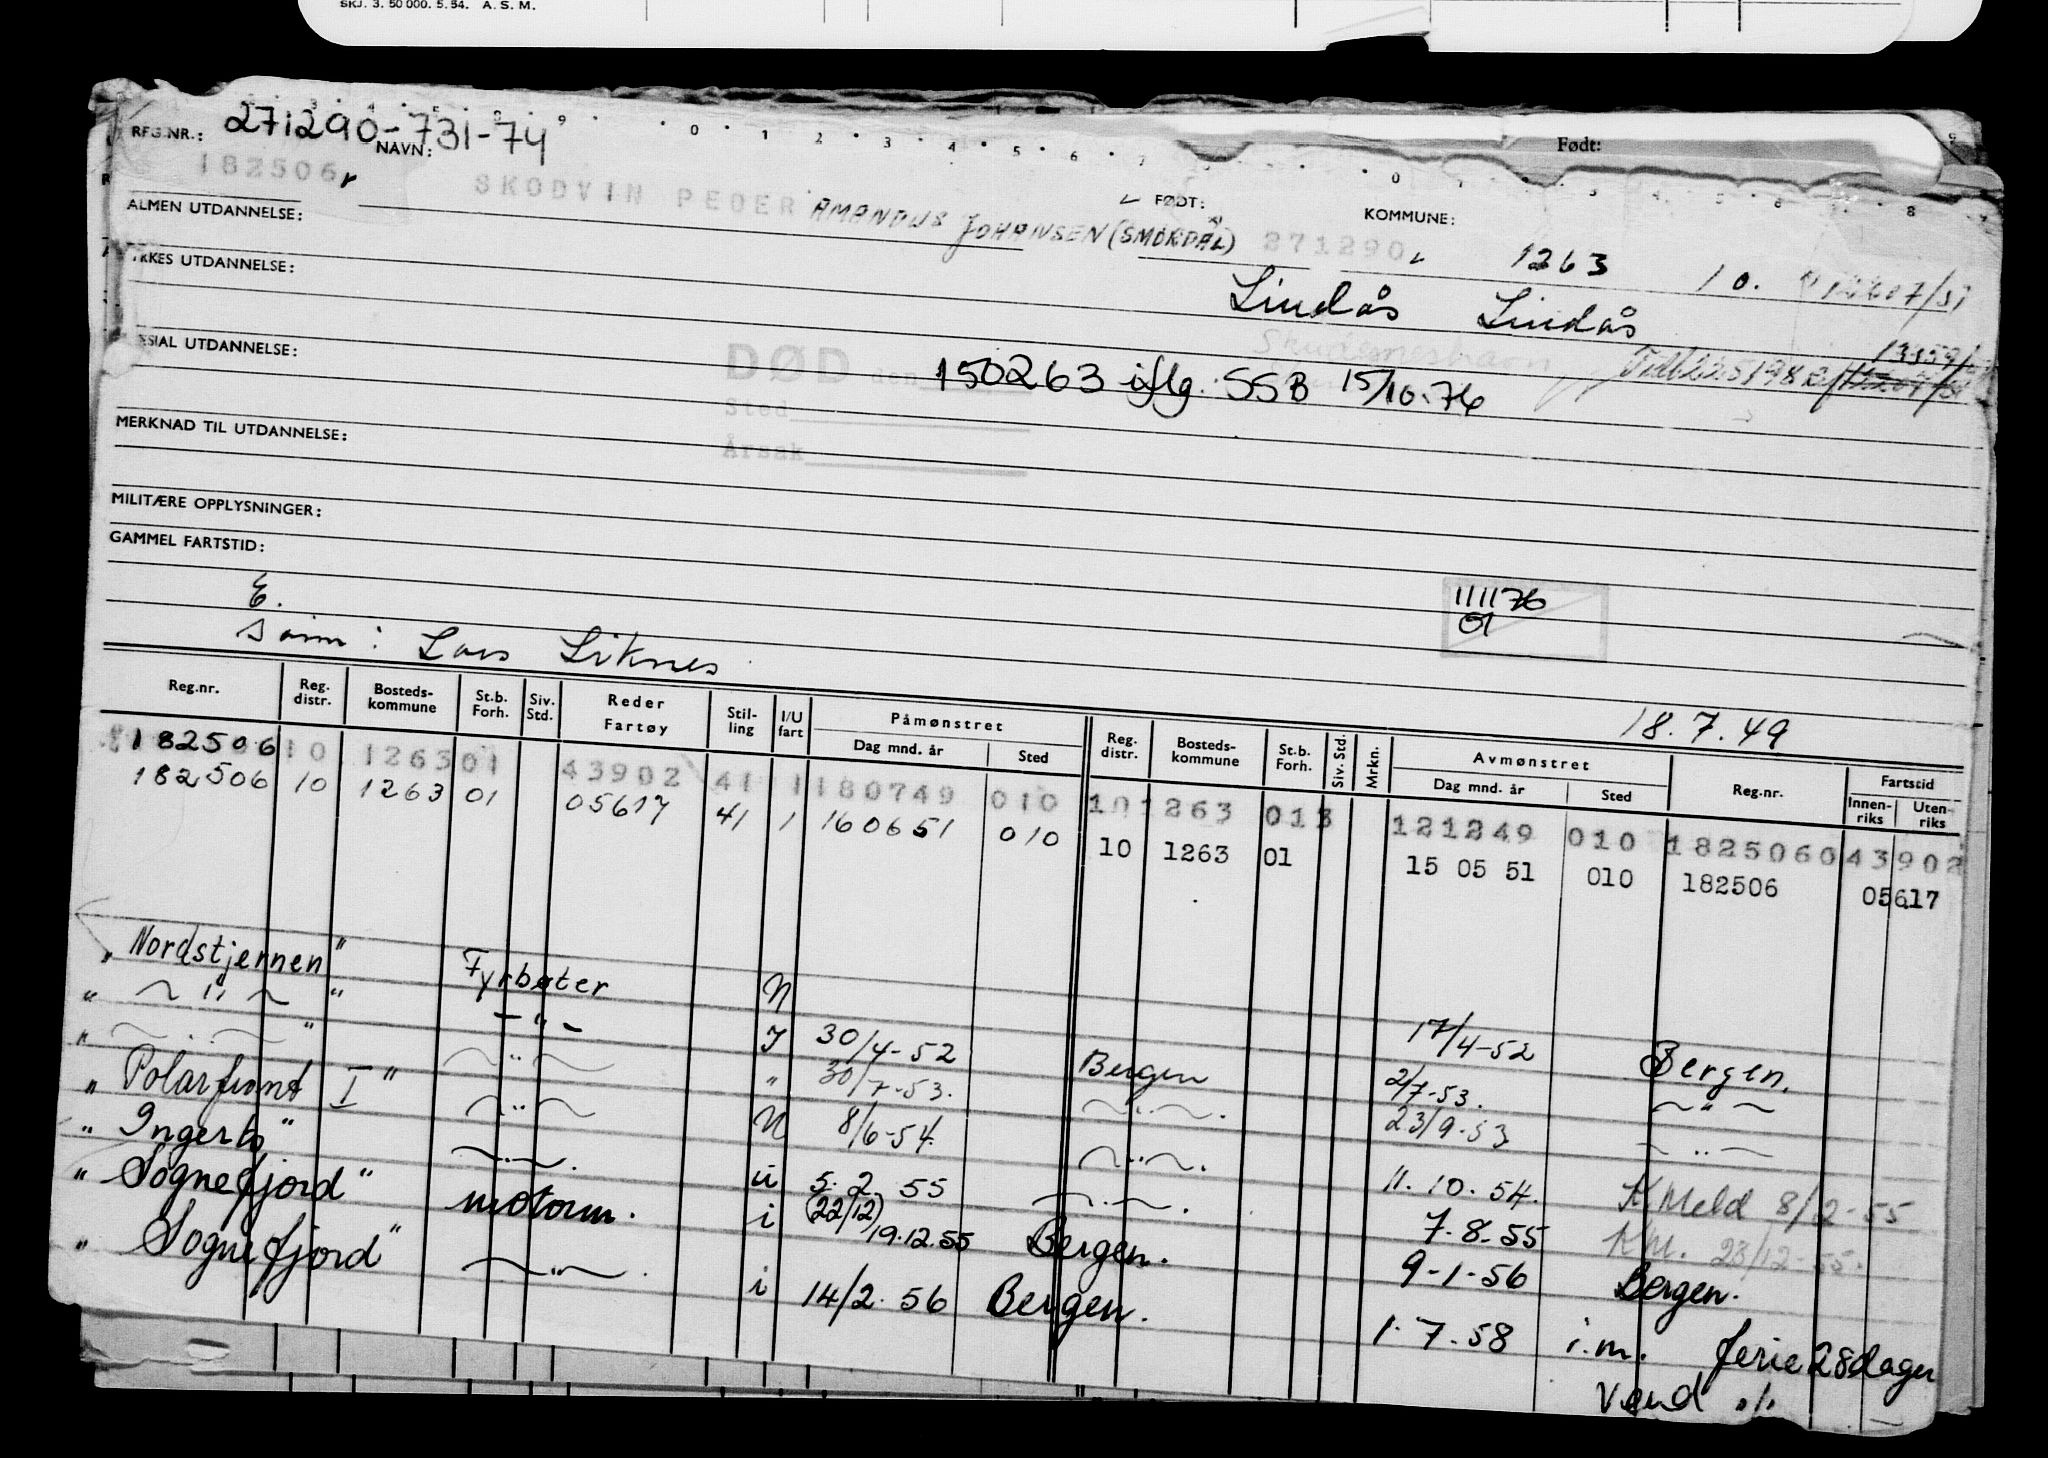 SKJ. 3. 50 000. 5. 54. A. S. M.
REG.NR.: 271290-731-74 NAVN: Født:
182506 SKODVIN PEDER AMANDUS JOHANSEN (SMØRDAL) FØDT: 271290 KOMMUNE: 1263 10.
ALMEN UTDANNELSE:
YRKES UTDANNELSE: Lindås Lindås
SPESIAL UTDANNELSE: DØD den 150263 iflg. SSB 15/10.76
Sted
MERKNAD TIL UTDANNELSE: Årsak
MILITÆRE OPPLYSNINGER:
GAMMEL FARTSTID:
111176
01
E.
Lars Liknes
18.7.49
Reg.nr. Reg. distr. Bosteds-kommune St.b. Forh. Siv. Std. Reder Fartøy Stil-ling I/U fart Påmønstret Dag mnd. år Sted Reg. distr. Bosteds-kommune St.b. Forh. Siv. Std. Mrkn. Avmønstret Dag mnd. år Sted Reg.nr. Fartstid Innen-riks Uten-riks
182506 10 1263 01 43902 41 1 180749 010 10 1263 013 121249 010 182506 043902
182506 10 1263 01 05617 41 1 160651 010 10 1263 01 15 05 51 010 182506 05617
„ Nordstjernen" Fyrbøter N 17/4-52 Bergen.
„ ~ " ~ " - " - I 30/4-52 Bergen 2/7-53. ~ " ~
„ ~ . ~ " ~ " ~ " 30/7-53. ~ " ~. 23/9-53 ~ " ~
„ Polarfront I" ~ " ~ N 8/6-54. ~ " ~. 11.10.54. K Meld 8/2-55
„ Ingerto" ~ " ~. u 5.2.55 ~ . ~. 7.8.55 KM. 28/12-55.
„ Sognefjord" motorm. i (22/12) 19.12.55 Bergen. 9-1-56 Bergen.
„ Sognefjord" ~ " ~. i 14/2.56 Bergen. 1.7.58 i.m. ferie 28 dager
Vend ./.